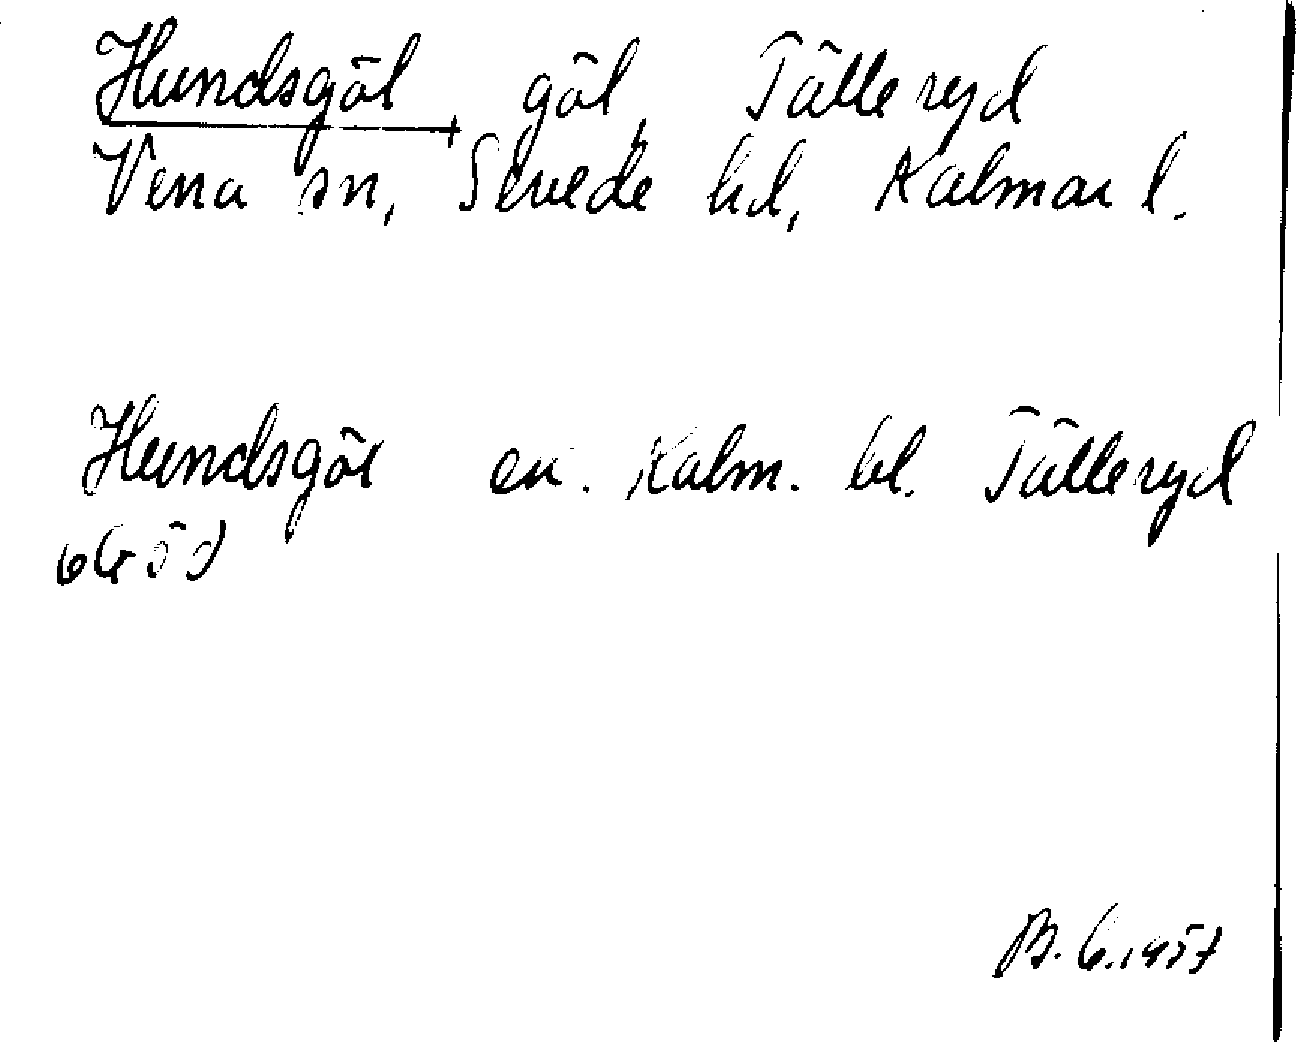 Hundsgöl göl, Tälleryd
Vena sn, Sevede hd, Kalmar l.
Hundsgöl ek. Kalm. bl. Tälleryd
6G5d
B.G.1957